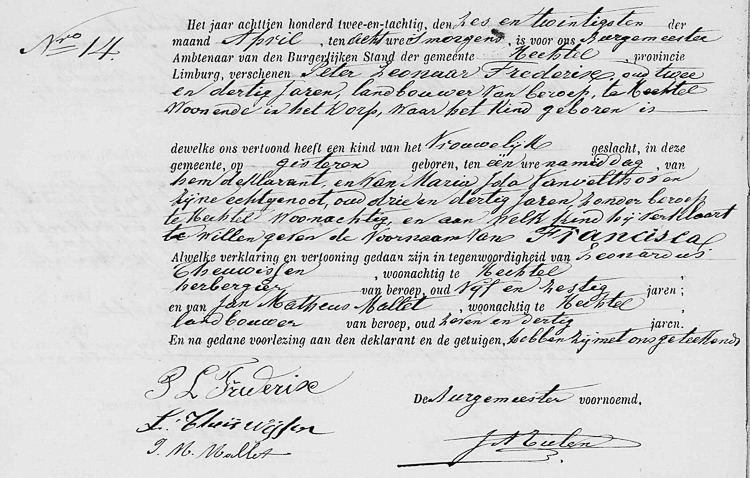 Nro 14.
Het jaar achttien honderd twee-en-tachtig, den zes en twintigsten der
maand April, ten acht ure s'morgens, is voor ons Burgemeester
Ambtenaar van den Burgerlijken Stand der gemeente Hechtel, provincie
Limburg, verschenen Peter Leonaar Frederix, oud twee
en dertig Jaren, landbouwer van beroep, te Hechtel
Woonende in het Dorp, waar het Kind geboren is
dewelke ons vertoond heeft een kind van het Vrouwelijk geslacht, in deze
gemeente, op gisteren geboren, ten één ure namiddag, van
hem deklarant, en van Maria Ida Vanvelthoven
zijne echtgenoot, oud drie en dertig Jaren zonder beroep
te Hechtel Woonachtig, en aan welk kind hij verklaart
te willen geven de Voornaam van Francisca,
Alwelke verklaring en vertooning gedaan zijn in tegenwoordigheid van Leonardus
Theuwissen, woonachtig te Hechtel
herbergier van beroep, oud vijf en zestig jaren;
en van Jan Matheus Mallet, woonachtig te Hechtel
landbouwer van beroep, oud zeven en dertig jaren.
En na gedane voorlezing aan den deklarant en de getuigen, hebben zij met ons geteekend
P L Frederix
De Burgemeester voornoemd.
J. M. Mallet